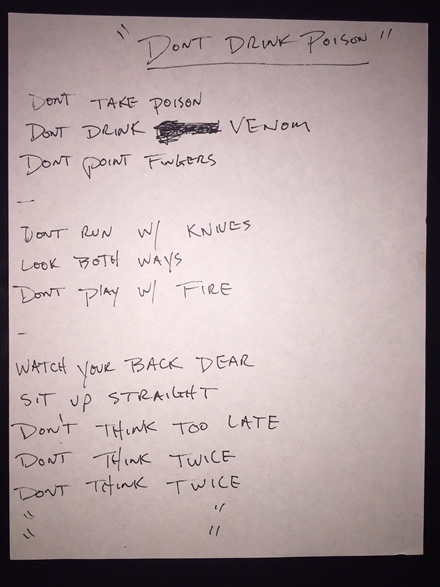 "DONT DRINK POISON"
DONT TAKE POISON
DONT DRINK VENOM
DONT POINT FINGERS
—
DONT RUN W/ KNIVES
LOOK BOTH WAYS
DONT PLAY W/ FIRE
—
WATCH YOUR BACK DEAR
SIT UP STRAIGHT
DON'T THINK TOO LATE
DONT THINK TWICE
DONT THINK TWICE
" "
" "